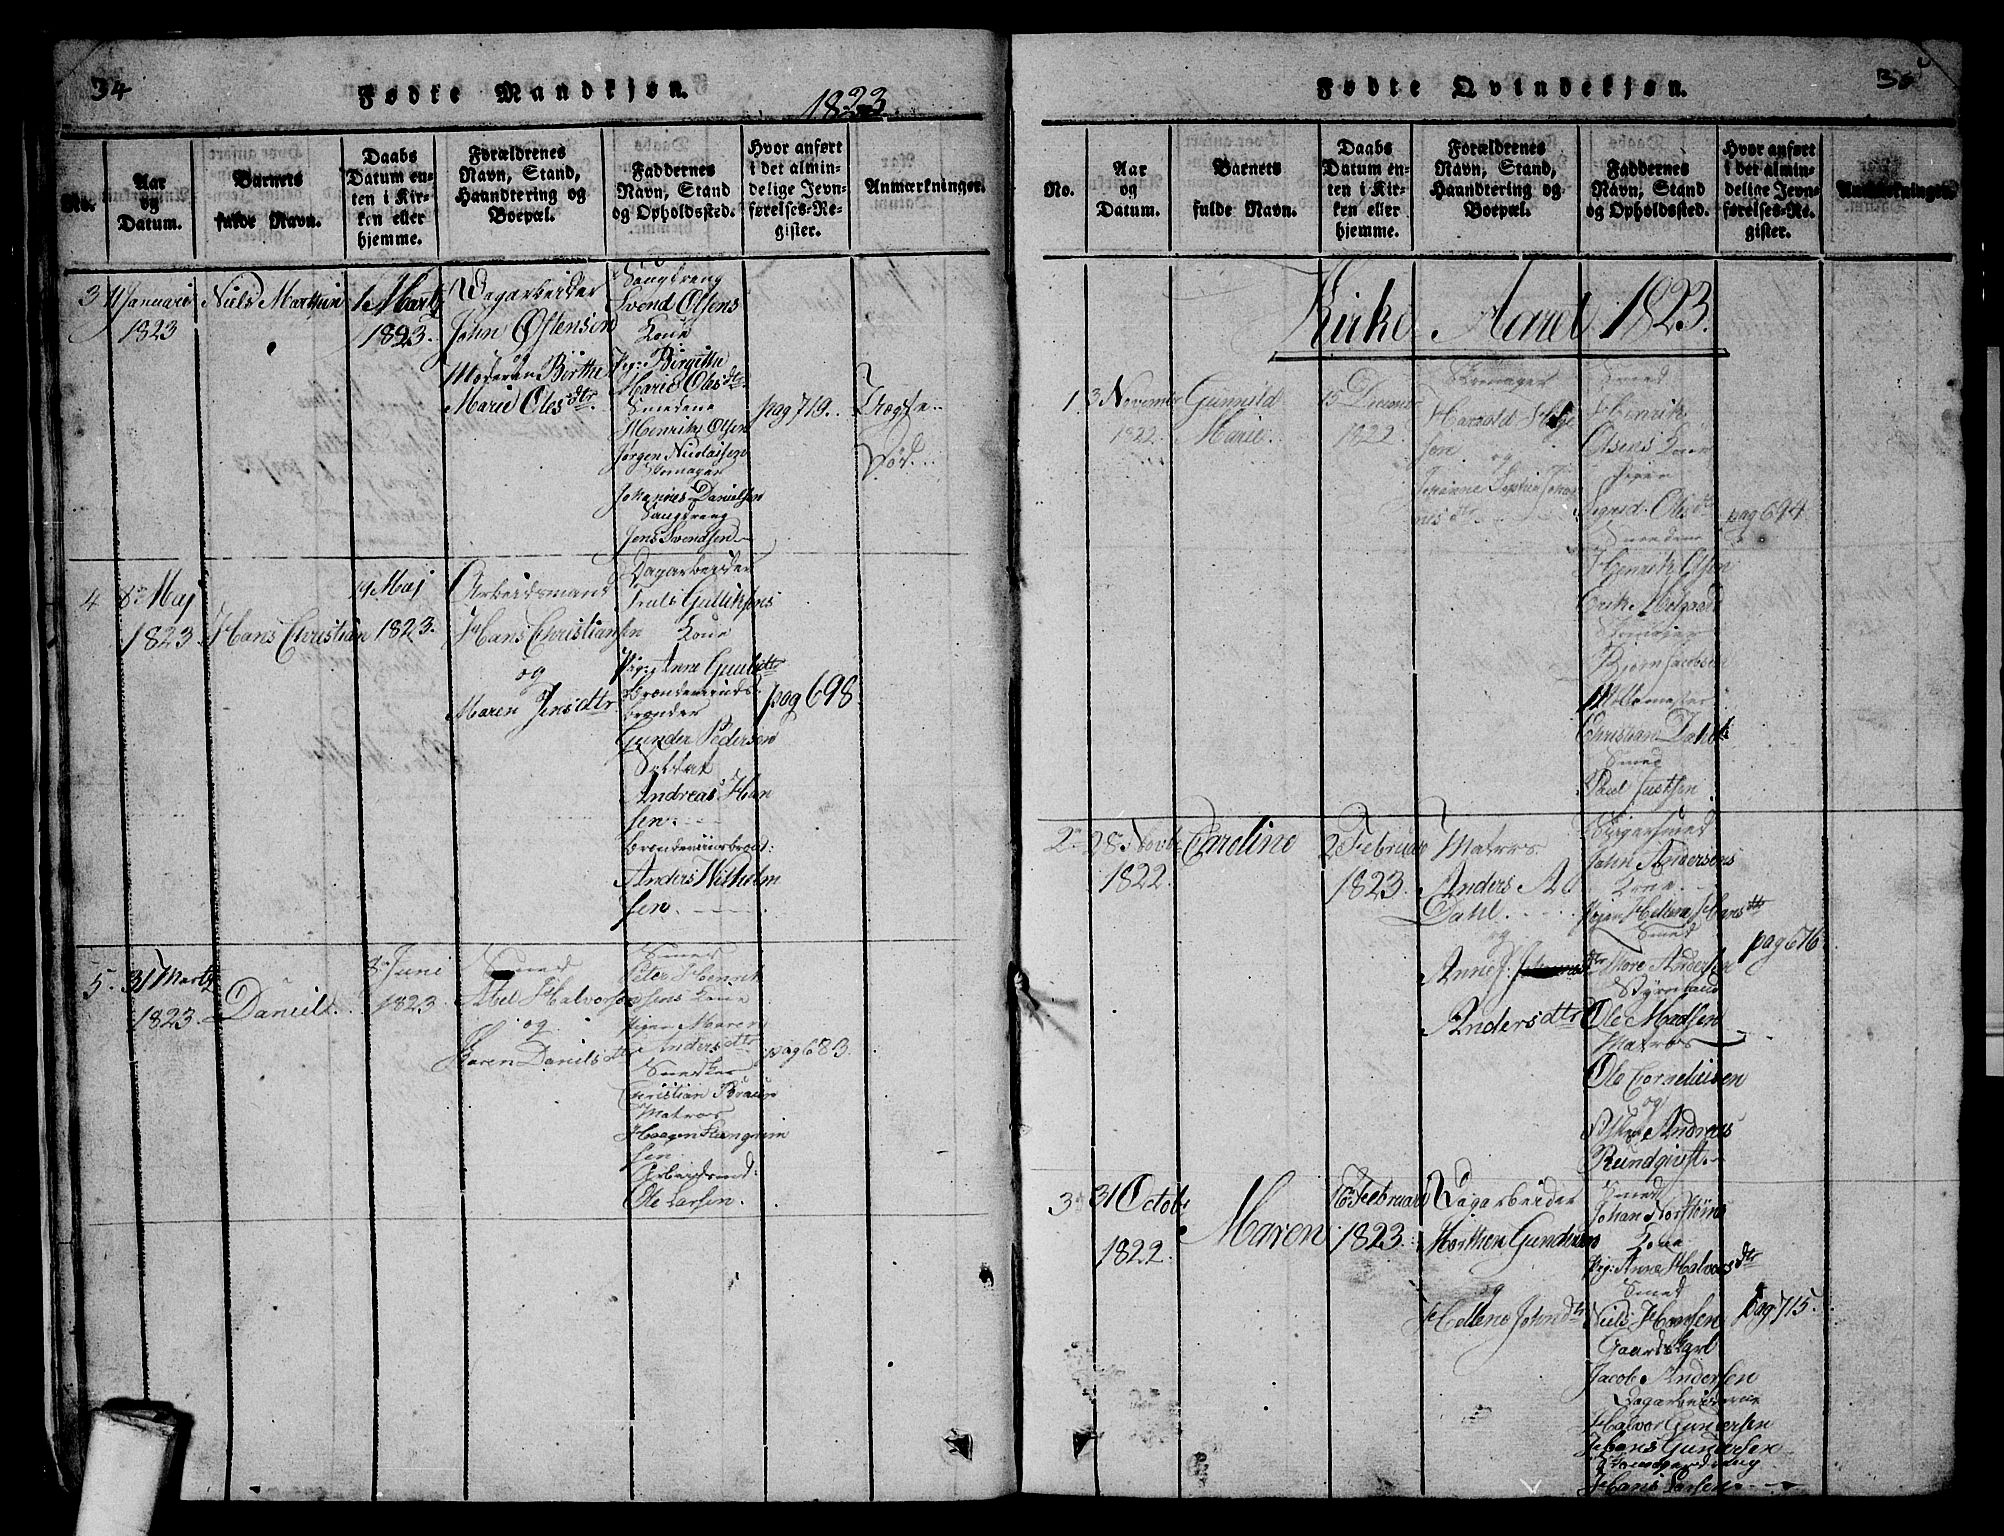 34
Fødte Mandkjøn.
1823
No.
Aar
og
Datum.
Barnets
fulde Navn.
Daabs
Datum en-
ten i Kir-
ken eller
hjemme.
Forældrenes
Navn, Stand,
Haandtering og
Boepæl.
Faddernes
Navn, Stand
og Opholdssted.
Hvor anført
i det almin-
delige Jevn-
førelses-Re-
gister.
Anmærkninger.
3
11 Januari
1823
Niels Marthin
1 Marti
1823.
Dagarbeider
John Østensen
og
Moderen Birthe
Marie Olesdtr.
Svend Olsens
Kone
Pig: Birgithe
Marie Olesdtr
Smedene
Henrik Olsen
Jørgen Nicolaisen
Johannes Danielsen
Jens Svendsen
pag 719.
Død.
4
8de Maj
1823
Hans Christian
19 Maj
1823.
Arbeidsmand
Hans Christiansen
og
Maren Jensdtr
Dagarbeider
Truls Gulliksens
Kone
Pig: Anne
Gunder Pedersen
Soldat
Andreas Han
sen.
Anders Wilhelm
sen.
pag 698.
5.
31 Marti
1823.
Daniel.
8de Juni
1823
Smed
Abel Halvorsen
og
Karen Danielsdtr
Smed
Peter Henrik
sens Kone
Pigen Maren
Andersdtr
Snedker
Christian Braun
Matros
sen
Arbeidsmd:
Ole Larsen.
pag 683.
Fødte Qvindekjøn.
No.
Aar
og
Datum.
Barnets
fulde Navn.
Daabs
Datum en-
ten i Kir-
ken eller
hjemme.
Forældrenes
Navn, Stand,
Haandtering og
Boepæl.
Faddernes
Navn, Stand
og Opholdssted.
Hvor anført
i det almin-
delige Jevn-
førelses-Re-
gister.
Anmærkninger.
Kirke Aaret 1823.
1.
3 Novemer
1822.
Gunnild
Marie.
15 Decemer
1822.
Skomager
Harald Helge
sen
og
Johanne Sophie Johan
nesdtr
Smed
Henrik
Olsens Kone
Pigen
Sigrid Olesdtr
Smedene
Henrik Olsen
Bjørn Jacobsen
Christian Dahl
Smed
Paul
pag 694
2
28 Novbr
1822.
Caroline
2 Februar
1823.
Matros
Anders A
Dahl.
og
Anne J.
Andersdtr
John Andersens
Kone
Pigen Hellena Hansdtr
Smed
Tore Andersen
Styrmand
Ole Madsen
Matros
Ole Corneliusen
og
Andreas
Rundqvist.
pag 676.
3
31 Octob
1822.
Maren
16 Februari
1823.
Dagarbeider
Morthen Gundersen
og
Hellene Johndtr
Smed
Johan Norstrøms
Kone
Pig: Anne Halvorsdtr
Smed
Niels Hansen
Gaardskarl
Jacob Andersen
Dagarbeiderne
Halvor Gundersen
Hans Gundersen
Hans Larsen
pag 715.